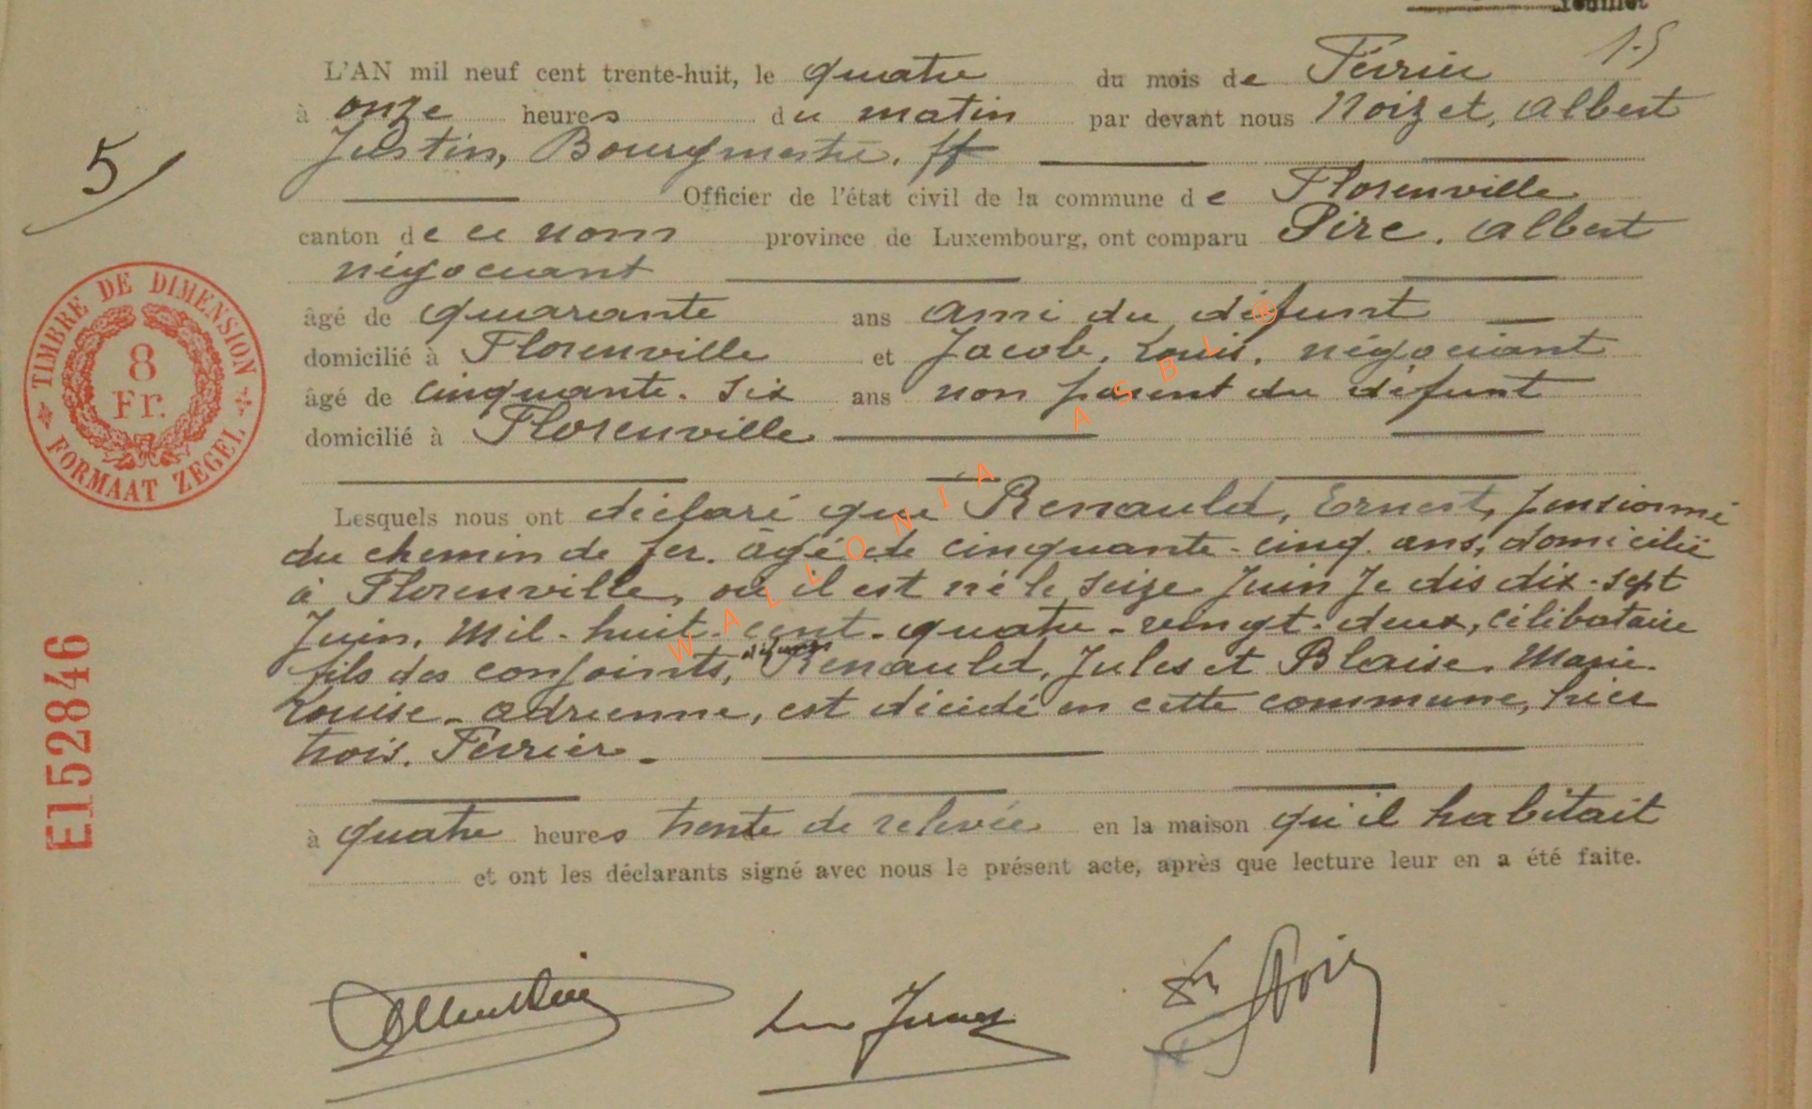 feuillet
15
L'AN mil neuf cent trente-huit, le quatre du mois de Février
à onze heures du matin par devant nous Noizet, Albert
5
Justin, Bourgmestre, ff
Officier de l'état civil de la commune de Florenville
canton de ce nom province de Luxembourg, ont comparu Pire, Albert
négociant
âgé de quarante ans ami du défunt
domicilié à Florenville et Jacob, Louis, négociant
âgé de cinquante-six ans non parent du défunt
domicilié à Florenville
TIMBRE DE DIMENSION
8
Fr.
FORMAAT ZEGEL
Lesquels nous ont déclaré que Renauld, Ernest, pensionné
du chemin de fer, âgé de cinquante-cinq ans, domicilié
à Florenville, où il est né le seize Juin Je dis dix-sept
Juin, Mil-huit-cent-quatre-vingt-deux, célibataire
fils des conjoints, défunts Renauld, Jules et Blaise, Marie
Louise-Adrienne, est décédé en cette commune, hier
trois Février
à quatre heures trente de relevée en la maison qu'il habitait
et ont les déclarants signé avec nous le présent acte, après que lecture leur en a été faite.
E152846
WALLONIA ASBL ®